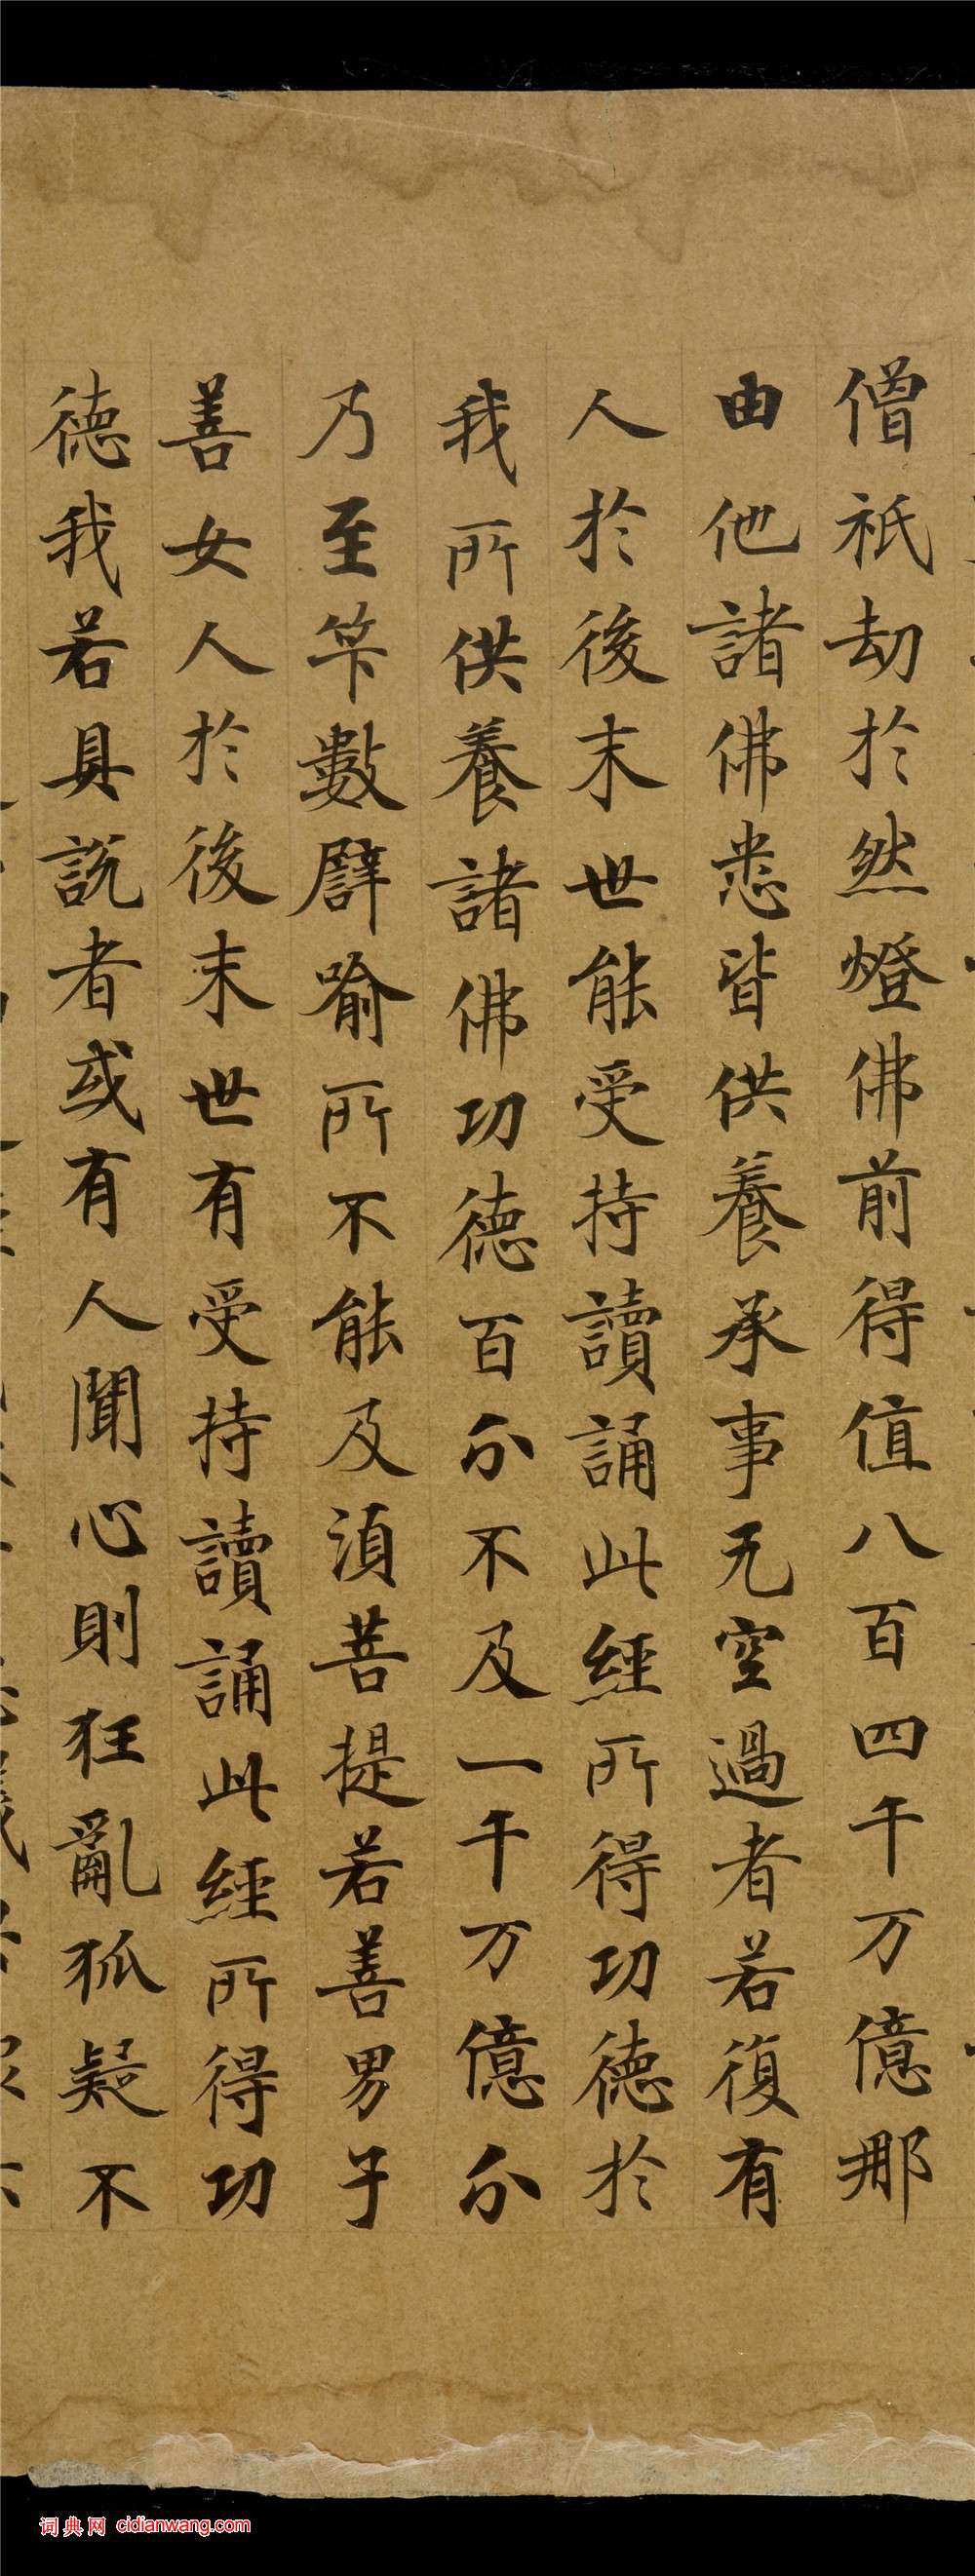 僧祇劫於然燈佛前得值八百四千万億那
由他諸佛悉皆供養承事无空過者若復有
人於後末世能受持讀誦此經所得功德於
我所供養諸佛功德百分不及一千万億分
乃至筭數譬喻所不能及須菩提若善男子
善女人於後末世有受持讀誦此經所得功
德我若具說者或有人聞心則狂亂狐疑不
词典网 cidianwang.com